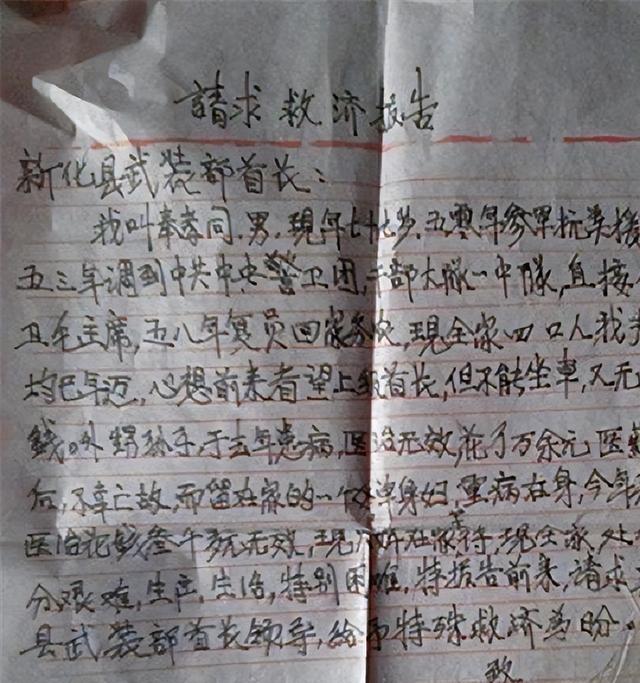 請求救济报告
新化县武装部首长：
我叫奉孝同,男.現年七十七岁.五零年参軍抗美援
五三年调到中共中央警卫团,干部大隊一中隊,直接
卫毛主席,五八年复员回家务农,現全家四口人我
均已年迈,心想前来看望上级首长,但不能坐車,又无
錢。外甥孙子,于去年患病,医治无效,花了万余元医
后,不幸亡故,而留在家的一个单身妇,重病在身,今年
医治花錢叁千多元无效,現在家待,現全家处
分艰难,生产,生活,特别困难,特报告前来,請求
县武装部首长领导,给予特殊救济为盼。
致